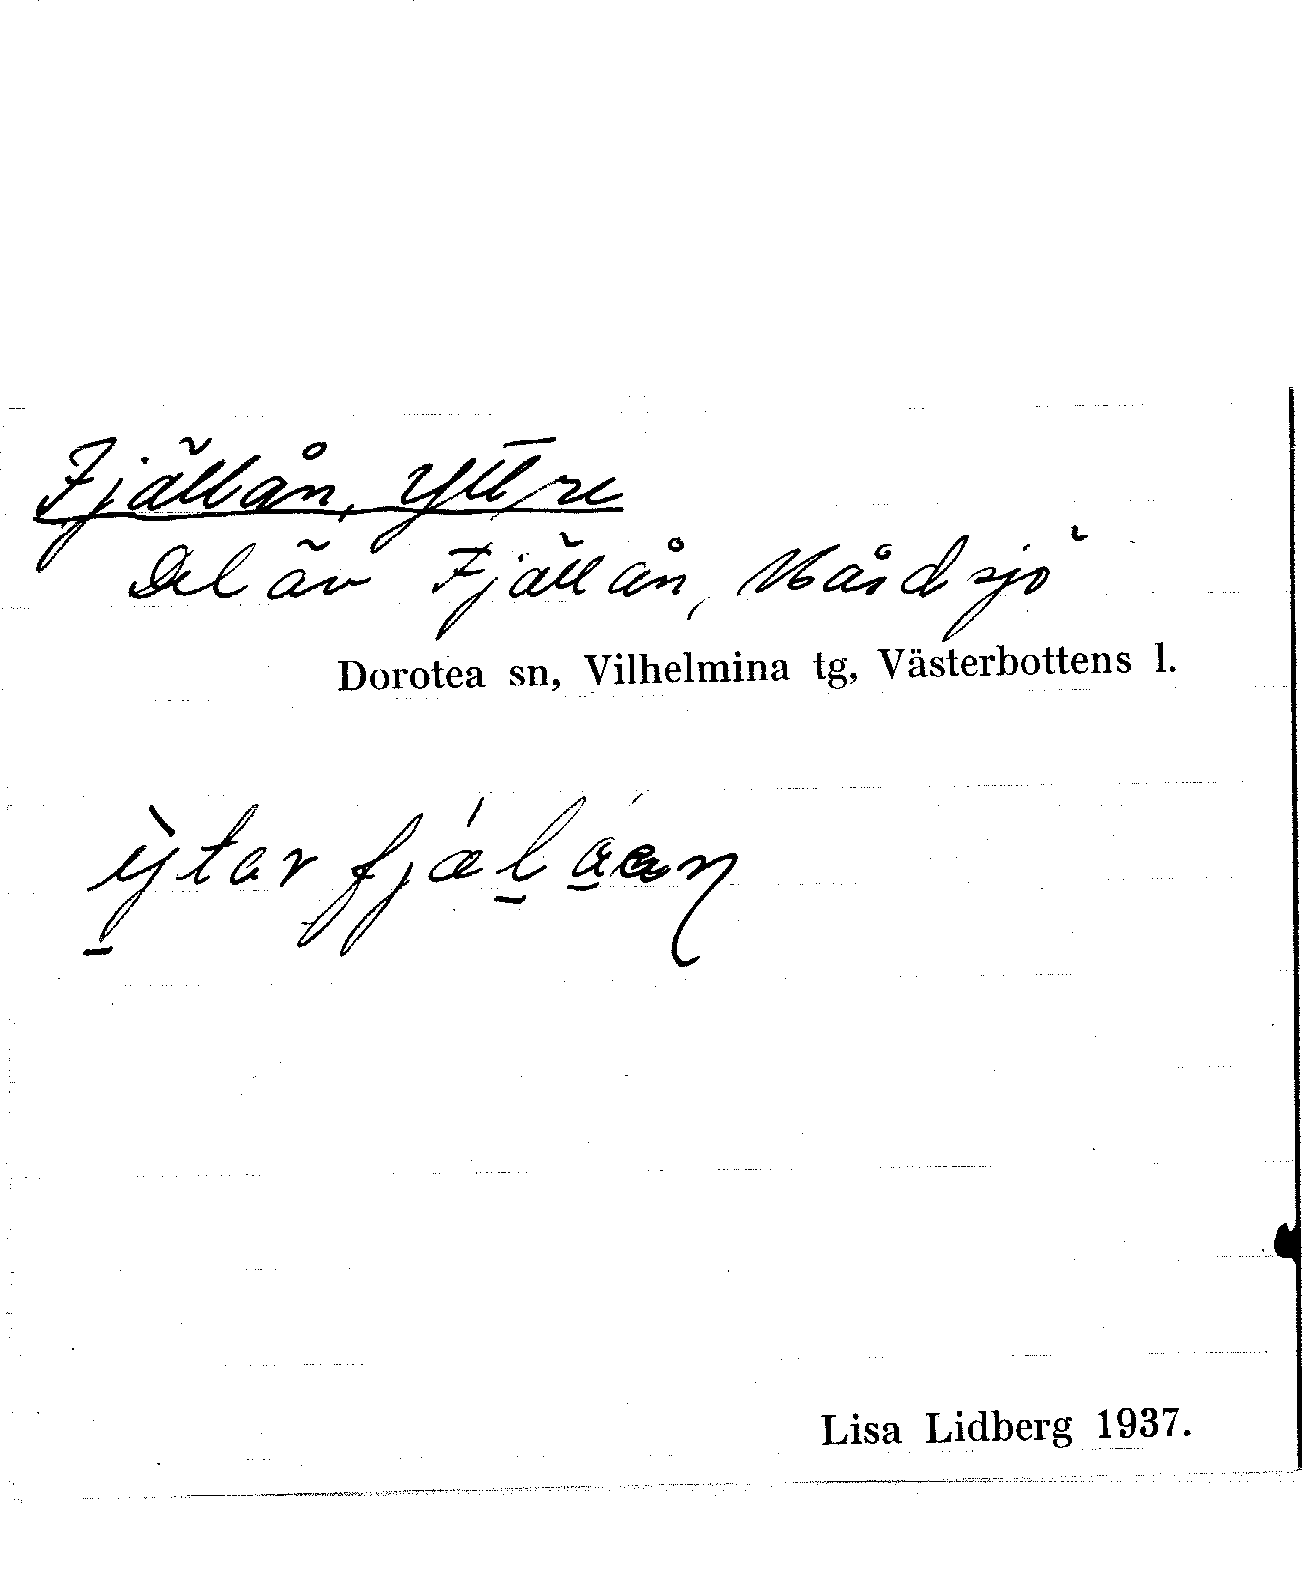 Fjällån, Yttre
Del av Fjällån, Mårdsjö
Dorotea sn, Vilhelmina tg, Västerbottens l.
Lisa Lidberg 1937.